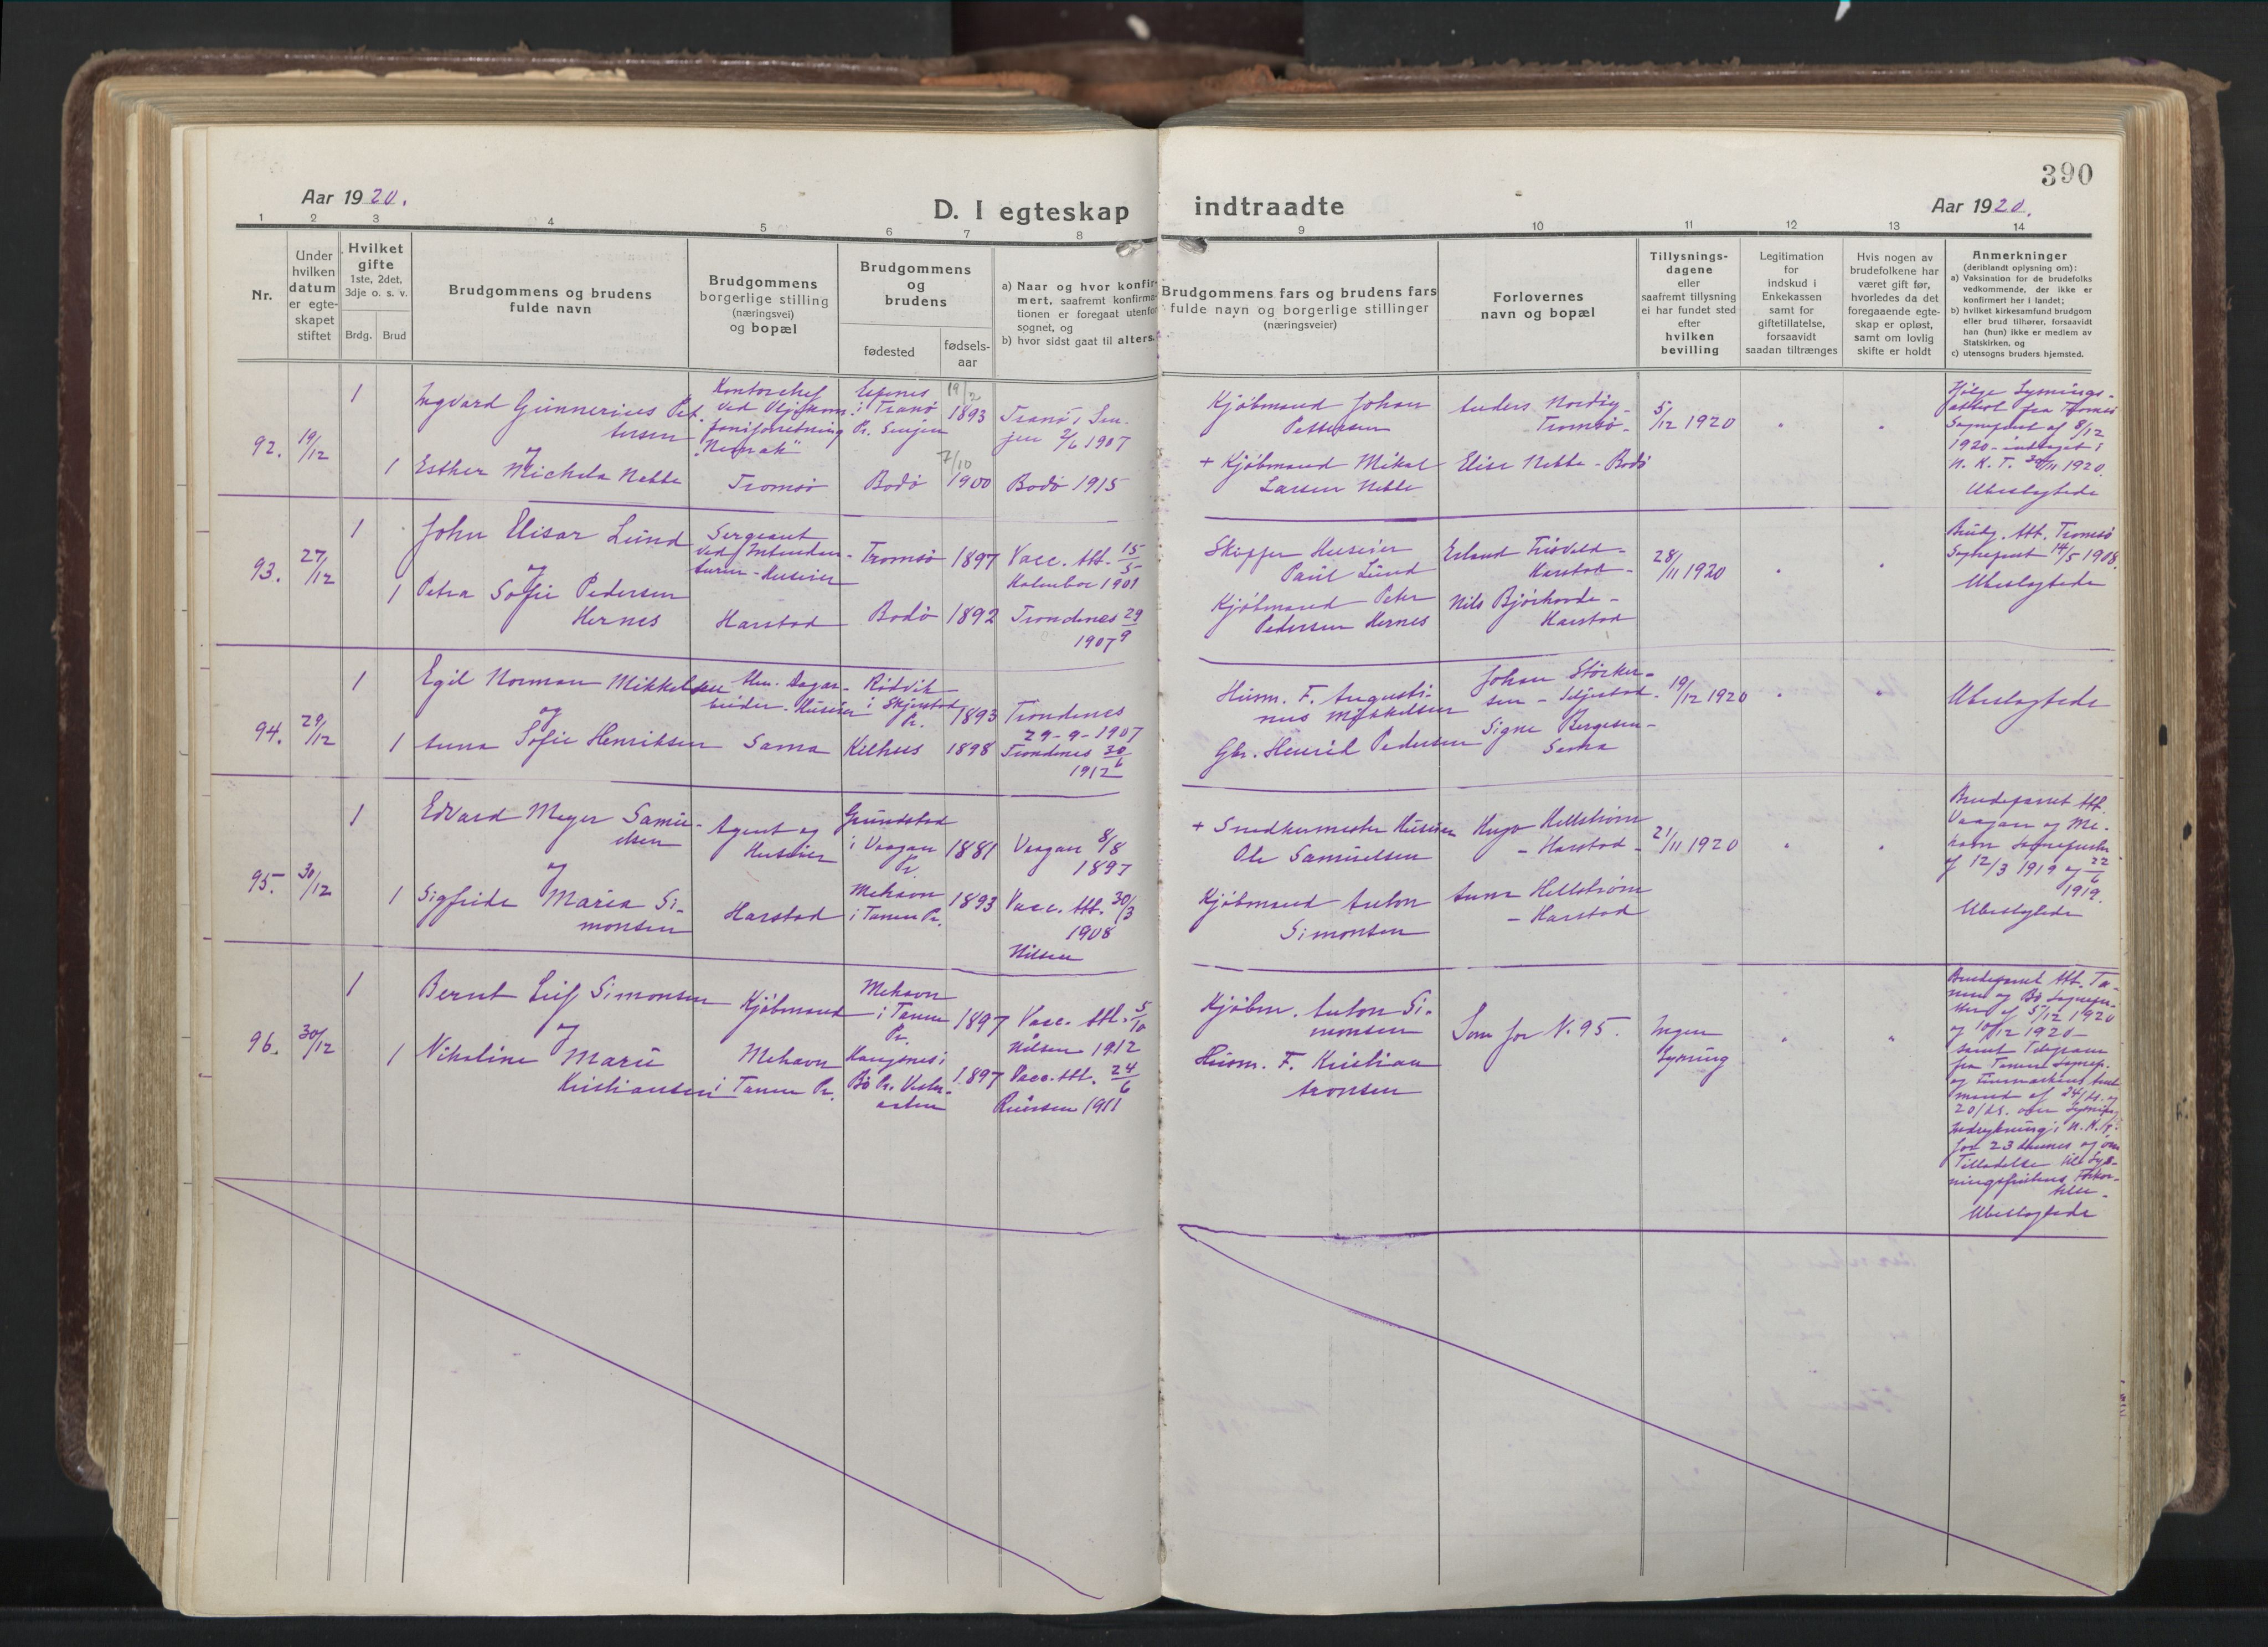 390
Aar 1920.
D. I egteskap indtraadte
Aar 1920.
1 2 3 4 5 6 7 8 9 10 11 12 13 14
Nr.
Under
hvilken
datum
er egte-
skapet
stiftet
Hvilket
gifte
1ste, 2det,
3dje o. s. v.
Brdg. Brud
Brudgommens og brudens
fulde navn
Brudgommens
borgerlige stilling
(næringsvei)
og bopæl
Brudgommens
og
brudens
fødested
fødsels-
aar
a) Naar og hvor konfir-
mert, saafremt konfirma-
tionen er foregaat utenfor
sognet, og
b) hvor sidst gaat til alters.
Brudgommens fars og brudens fars
fulde navn og borgerlige stillinger
(næringsveier)
Forlovernes
navn og bopæl
Tillysnings-
dagene
eller
saafremt tillysning
ei har fundet sted
efter
hvilken
bevilling
Legitimation
for
indskud i
Enkekassen
samt for
giftetillatelse,
forsaavidt
saadan tiltrænges
Hvis nogen av
brudefolkene har
været gift før,
hvorledes da det
foregaaende egte-
skap er opløst,
samt om lovlig
skifte er holdt
Anmerkninger
(deriblandt oplysning om):
a) Vaksination for de brudefolks
vedkommende, der ikke er
konfirmert her i landet;
b) hvilket kirkesamfund brudgom
eller brud tilhører, forsaavidt
han (hun) ikke er medlem av
Statskirken, og
c) utensogns bruders hjemsted.
92.
19/12
1
Ingvard Gunnerius Pet-
tersen
og
1
Esther Michela Nebbe
Kontorchef
ved
Tromsø
i Tranø
Pr. Senjen
19/2
1893
Bodø
7/10
1900
Tranø i Sen-
jen 2/6 1907
Bodø 1915
Kjøbmand Johan
Pettersen
+ Kjøbmand Mikal
Larsen Nebbe
Anders Nordby-
Tromsø-
Elise Nebbe - Bodø
5/12 1920
Ifølge Lysnings-
attest fra Tromsø
Sogneprest af 8/12
1920 - indtaget i
N. K. T. 30/11 1920.
Ubeslægtede
93.
27/12
1
John Elisar Lund
og
1
Petra Sofie Pedersen
Hernes
Sergeant
ved Intendan-
turen - Huseier
Harstad
Tromsø
1897
Bodø
1892
Vacc. Att. 15/5
Holmboe 1901
Trondenes 29/9
1907
Skipper Huseier
Paul Lund
Kjøbmand Peter
Pedersen Hernes
Erland Frisvold-
Harstad-
Nils Bjørhovde-
Harstad
28/11 1920
Brudg. Att. Tromsø
Sogneprest 14/5 1908.
Ubeslægtede
94.
29/12
1
Egil Norman Mikkelsen
og
1
Anna Sofie Henriksen
Alm. Dagar-
beider - Huseier
Sama
Rødvik
i Skjerstad
Pr.
1893
Kilhus
1898
Trondenes
29-9-1907
Trondenes 30/6
1912
Husm. F. Augusti-
nus Mikkelsen
Gbr. Henrik Pedersen
Johan Størker-
sen -
Signe Bergesen-
Sama
19/12 1920
Ubeslægtede
95.
30/12
1
Edvard Meyer Samu-
elsen
og
1
Sigfride Maria Si-
monsen
Agent og
Huseier
Harstad
Grundstad
i Vaagan
Pr.
1881
Mehavn
i Tanen Pr.
1893
Vaagan 8/8
1897
Vacc. Att. 30/3
1908
Nilsen
+ Snedkermester Huseier
Ole Samuelsen
Kjøbmand Anton
Simonsen
Hugo Hellstrøm
- Harstad -
Anna Hellstrøm
- Harstad
21/11 1920
Brudeparret Att.
Vaagan og Me-
havn Sogneprester
af 12/3 1919 og 22/6
1919.
Ubeslægtede
96.
30/12
1
Bernt Leif Simonsen
og
1
Nikoline Marie
Kristiansen
Kjøbmand
Mehavn
i Tanen Pr.
Mehavn
i Tanen
Pr.
1897
Bø Pr. Vester-
aalen
1897
Vacc. Att. 5/10
Nilsen 1912
Vacc. Att. 24/6
1911
Kjøbm. Anton Si-
monsen
Husm. F. Kristian
Aronsen
Som for N. 95.
Ingen
Lysning
Brudeparret Att. Ta-
nen og Bø Sognepre-
ster af 5/12 1920
og 10/12 1920 -
samt Telegram
fra Tanen Sognep.
og Finmarkens Amt
mand af 24/ds. og
20/ds. om Lysning
Indrykning i N. K. T.
for 23 dennes og om
Tilladelse til Lys-
ningsfristens Forkor-
telse.
Ubeslægtede